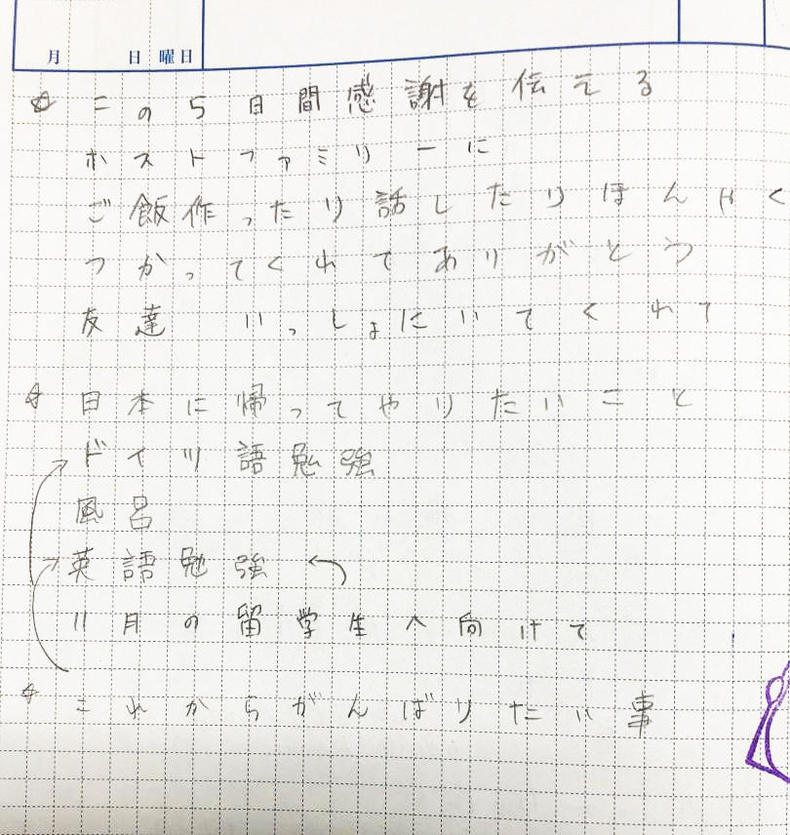 月 日 曜日
☆ この5日間感謝を伝える
ホストファミリーに
ご飯作ったり話したりほんやく
つかってくれてありがとう
友達 いっしょにいてくれて
☆ 日本に帰ってやりたいこと
ドイツ語勉強
風呂
英語勉強
11月の留学生へ向けて
☆ これからがんばりたい事